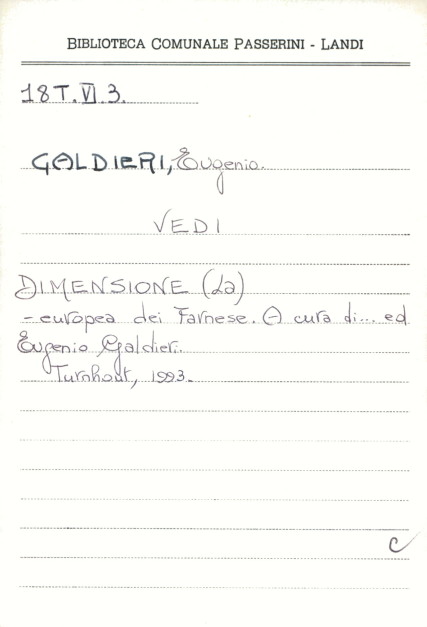 BIBLIOTECA COMUNALE PASSERINI - LANDI
18T.VI.3.
GALDIERI, Eugenio.
VEDI
DIMENSIONE (La)
- europea dei Farnese. A cura di... ed
Eugenio Galdieri.
Turnhout, 1993.
C